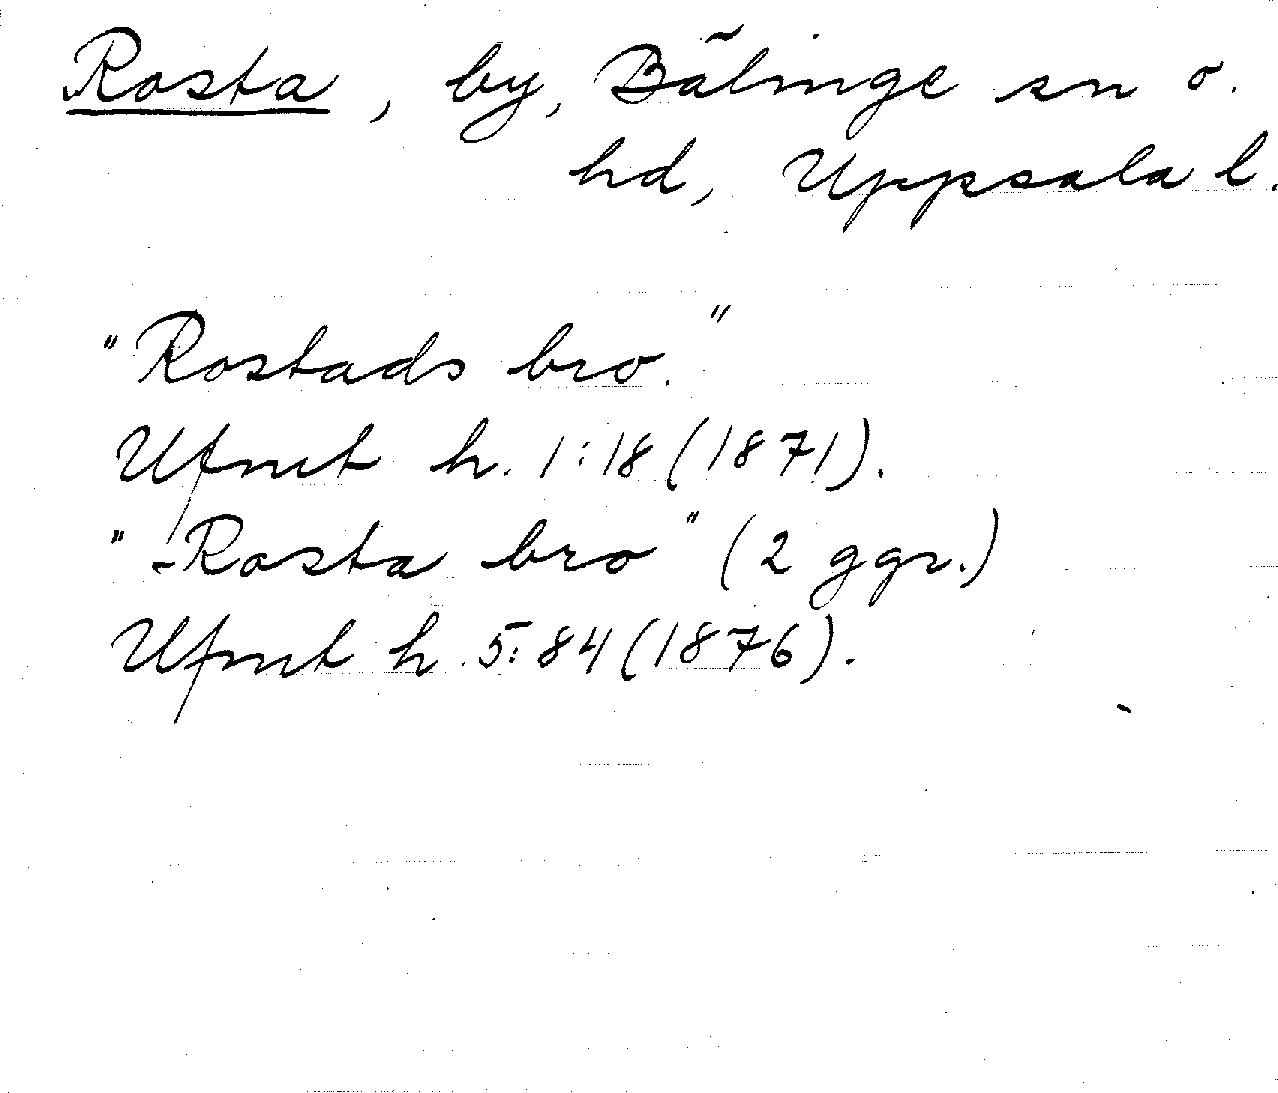 Rosta, by, Bälinge sn o.
hd, Uppsala l.
"Rostads bro."
Ufmt h. 1:18 (1871).
"-Rosta bro" (2 ggr.)
Ufmt h. 5:84 (1876).